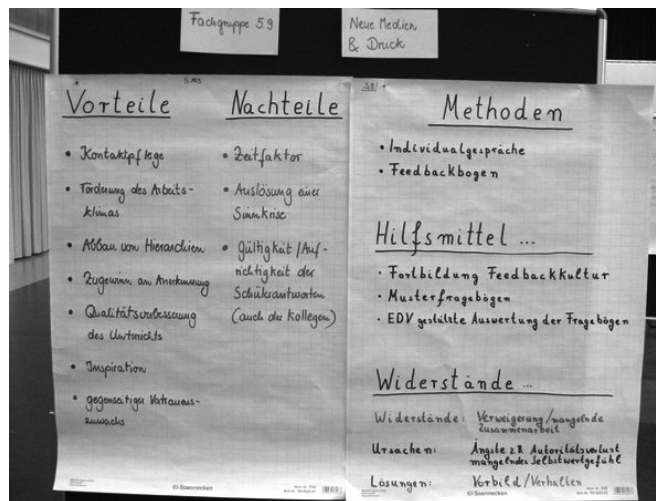 Fachgruppe 5.9
Neue Medien
& Druck
Vorteile
• Kontaktpflege
• Förderung des Arbeits-
klimas
• Abbau von Hierarchien
• Zugewinn an Anerkennung
• Qualitätsverbesserung
des Unterrichts
• Inspiration
• gegenseitiger Vertrauens-
zuwachs
Nachteile
• Zeitfaktor
• Auslösung einer
Sinnkrise
• Gültigkeit/Auf-
richtigkeit der
Schülerantworten
(auch der Kollegen)
Soennecken
Methoden
• Individualgespräche
• Feedbackbogen
Hilfsmittel ...
• Fortbildung Feedbackkultur
• Musterfragebögen
• EDV gestützte Auswertung der Fragebögen
Widerstände ...
Widerstände: Verweigerung/mangelnde
Zusammenarbeit
Ursachen: Ängste z.B. Autoritätsverlust
mangelndes Selbstwertgefühl
Lösungen: Vorbild/Verhalten
Soennecken